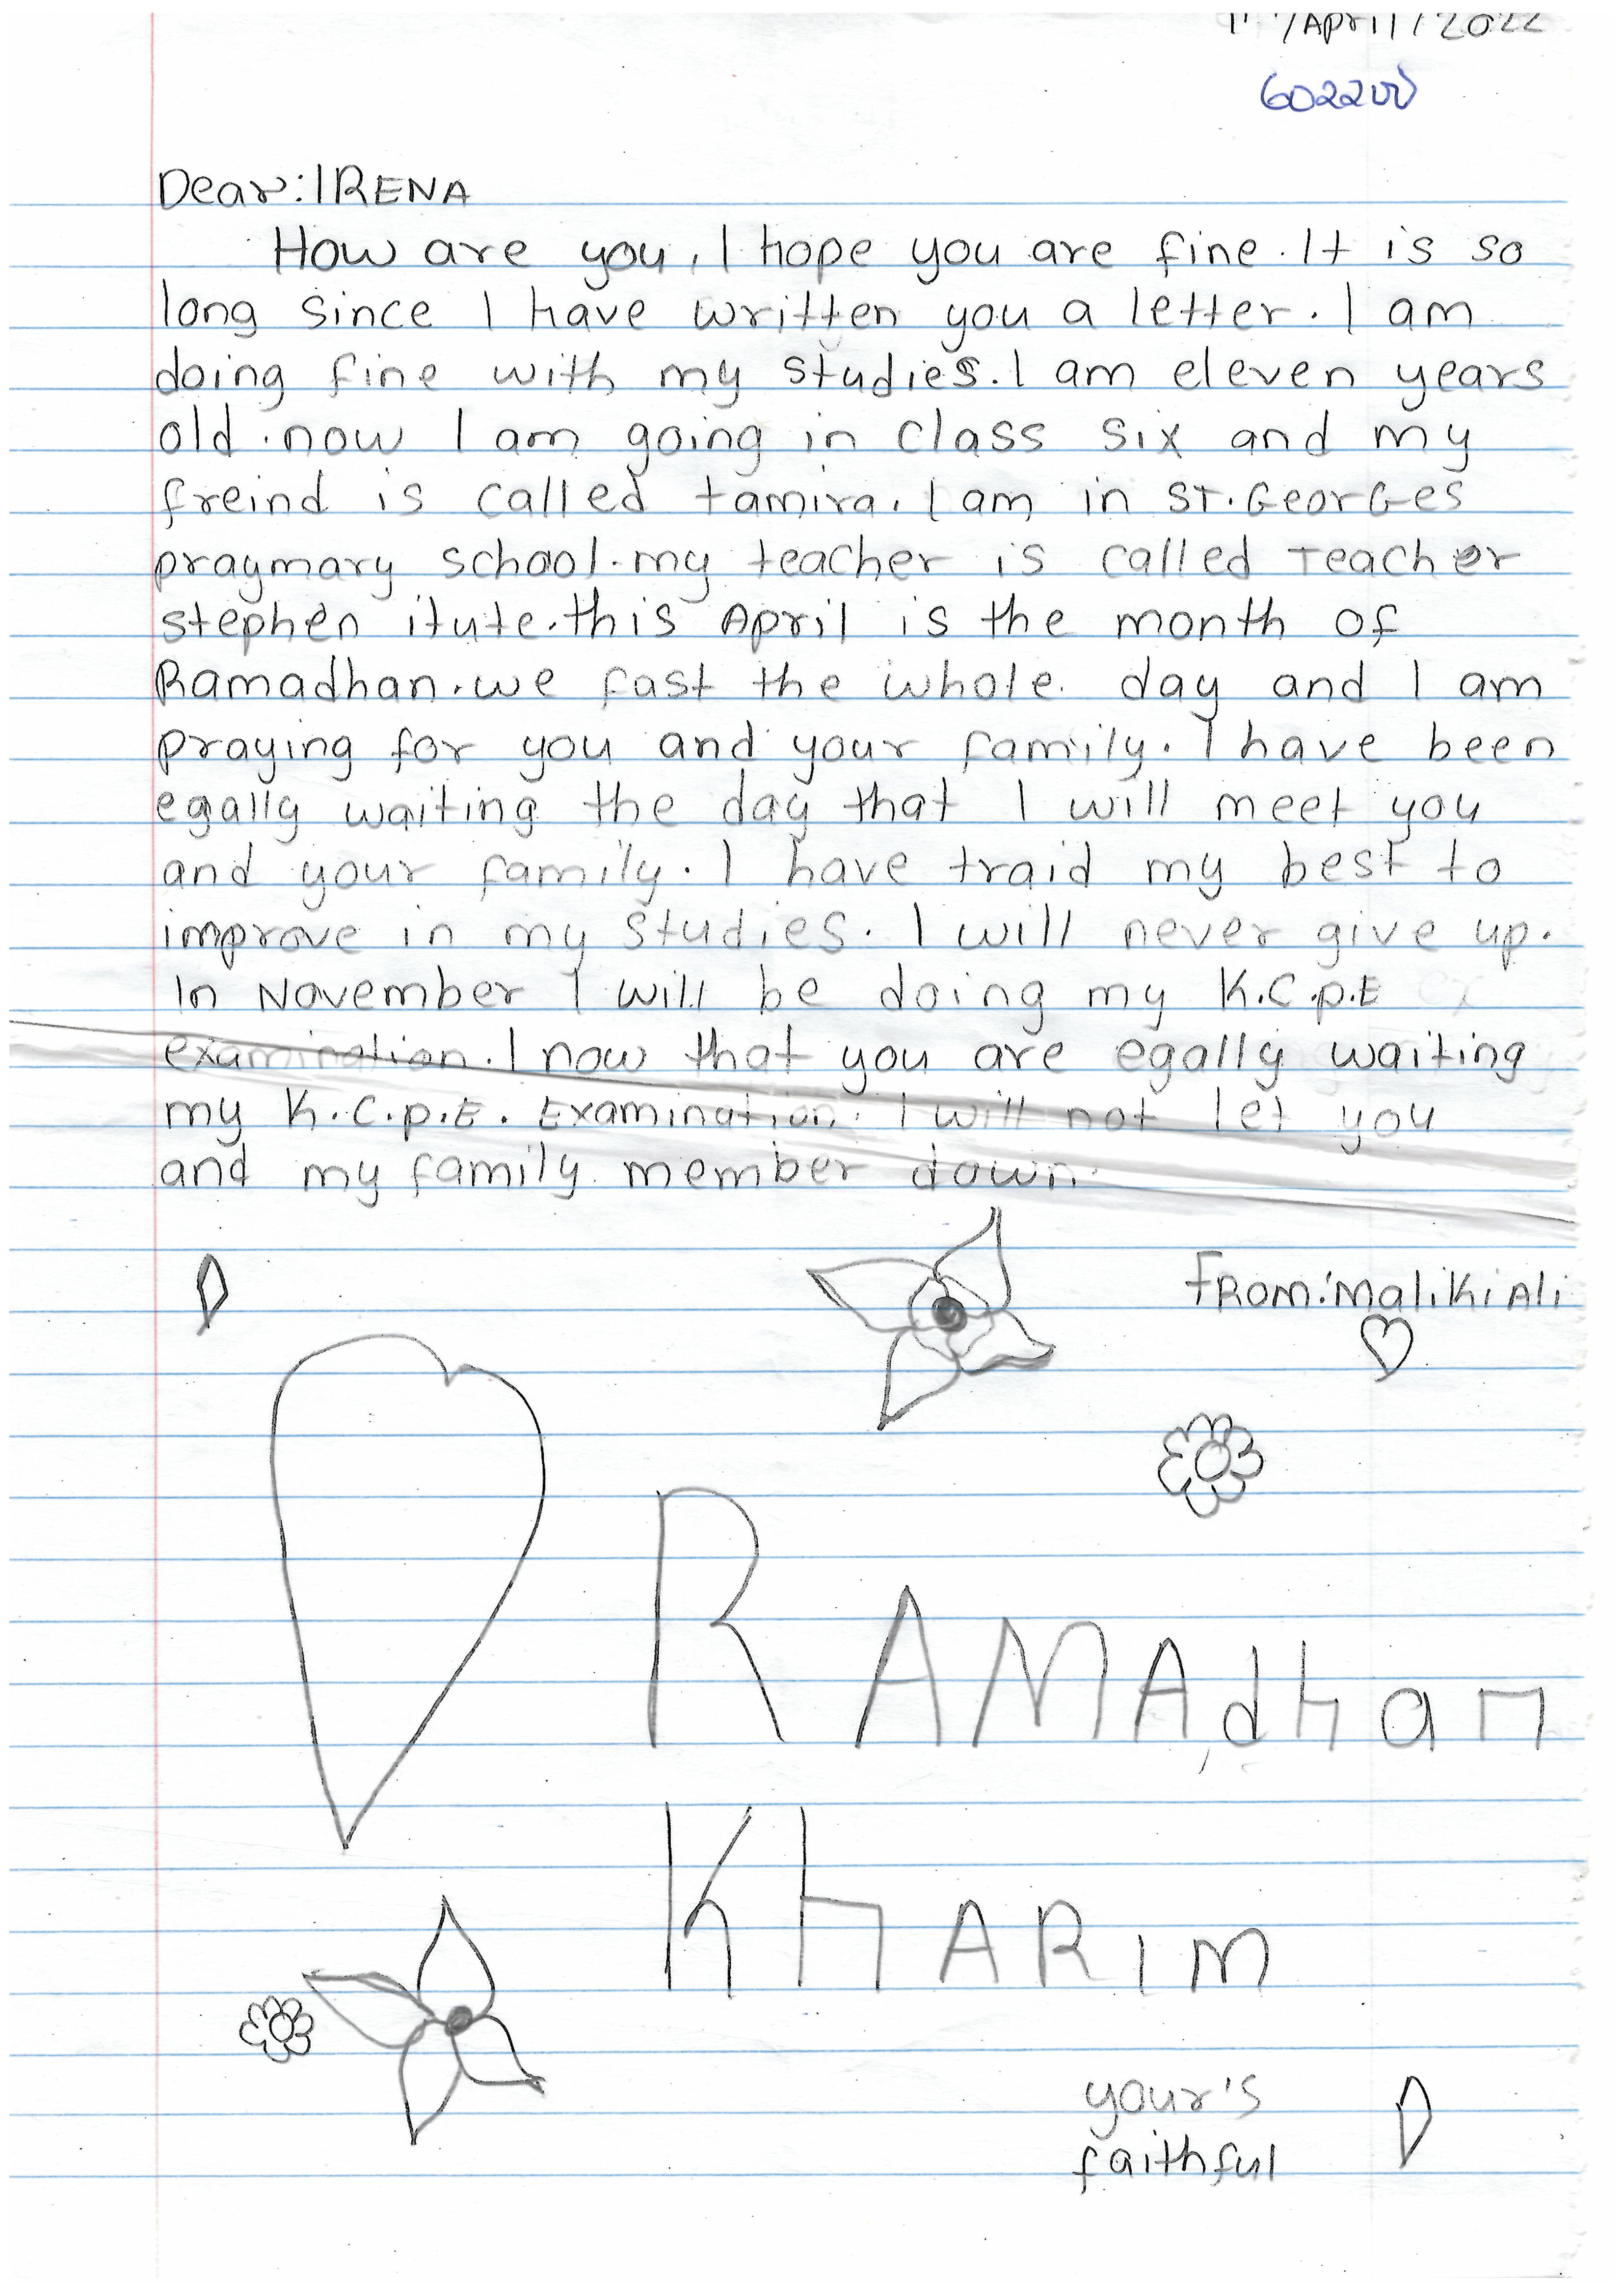 /April/2022
Dear: IRENA
How are you, I hope you are fine. It is so
long since I have written you a letter. I am
doing fine with my studies. I am eleven years
old. now I am going in class six and my
freind is called tamira. I am in ST. GeorGes
praymary school. my teacher is called Teacher
stephen itute. this April is the month of
Ramadhan. we fast the whole. day and I am
praying for you and your family. I have been
egally waiting the day that I will meet you
and your family. I have traid my best to
improve in my studies. I will never give up.
In November I will be doing my K.C.p.E
examination. I now that you are egally waiting
my K.C.p.E. Examination. I will not let you
and my family member down.
FROM: Maliki Ali
RAMAdhan
KhARIM
your's
faithful